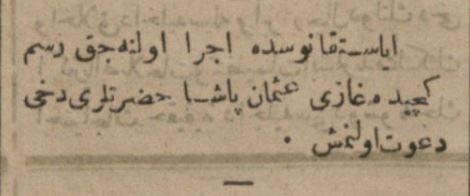 ایاستفانوسده اجرا اولنه‌جق رسم
كچیده غازی عثمان پاشا حضرتلری دخی
دعوت اولنمش .